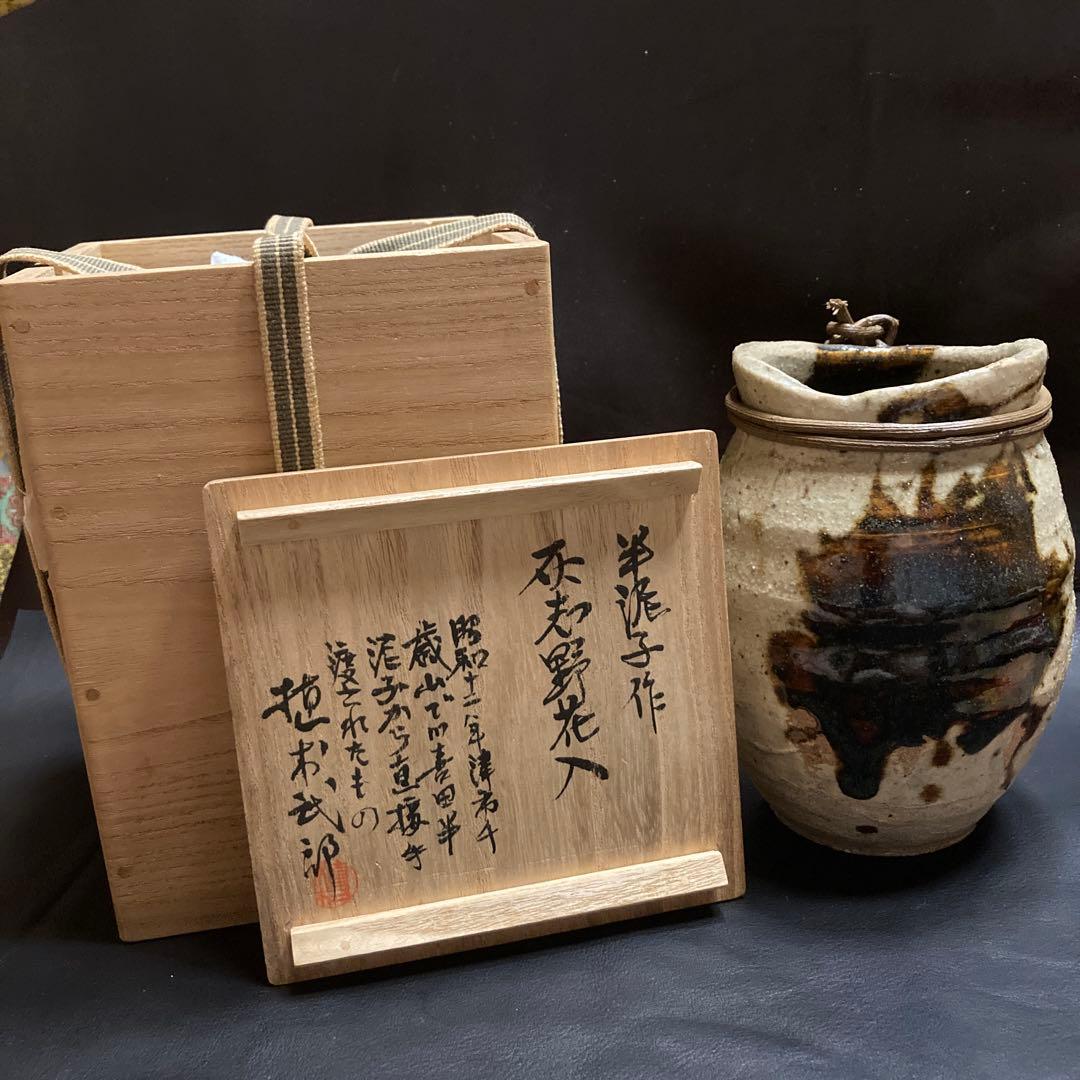 半泥子作
灰志野花入
昭和十二八年津市千
歳山で川喜田半
泥子から直接手
渡されたもの
植木武郎